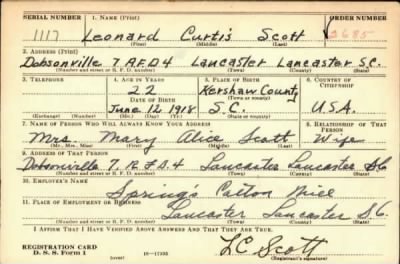 SERIAL NUMBER 1. NAME (Print) ORDER NUMBER
1117 Leonard Curtis Scott 2685
(First) (Middle) (Last)
2. ADDRESS (Print)
Dobsonville 7 RFD4 Lancaster Lancaster S.C.
(Number and street or R. F. D. number) (Town) (County) (State)
3. TELEPHONE 4. AGE IN YEARS 5. PLACE OF BIRTH 6. COUNTRY OF CITIZENSHIP
22 Kershaw County
DATE OF BIRTH (Town or county)
June 12 1918 S.C. U.S.A.
(Exchange) (Number) (Mo.) (Day) (Yr.) (State or country)
7. NAME OF PERSON WHO WILL ALWAYS KNOW YOUR ADDRESS 8. RELATIONSHIP OF THAT PERSON
Mrs. Mary Alice Scott Wife
(Mr., Mrs., Miss) (First) (Middle) (Last)
9. ADDRESS OF THAT PERSON
Dobsonville 7. R.F.D.4 Lancaster Lancaster S.C.
(Number and street or R. F. D. number) (Town) (County) (State)
10. EMPLOYER'S NAME
Springs Cotton Mill
11. PLACE OF EMPLOYMENT OR BUSINESS
Lancaster Lancaster S.C.
(Number and street or R. F. D. number) (Town) (County) (State)
I AFFIRM THAT I HAVE VERIFIED ABOVE ANSWERS AND THAT THEY ARE TRUE.
REGISTRATION CARD
D. S. S. Form 1 (over) L C Scott
(Registrant's signature)